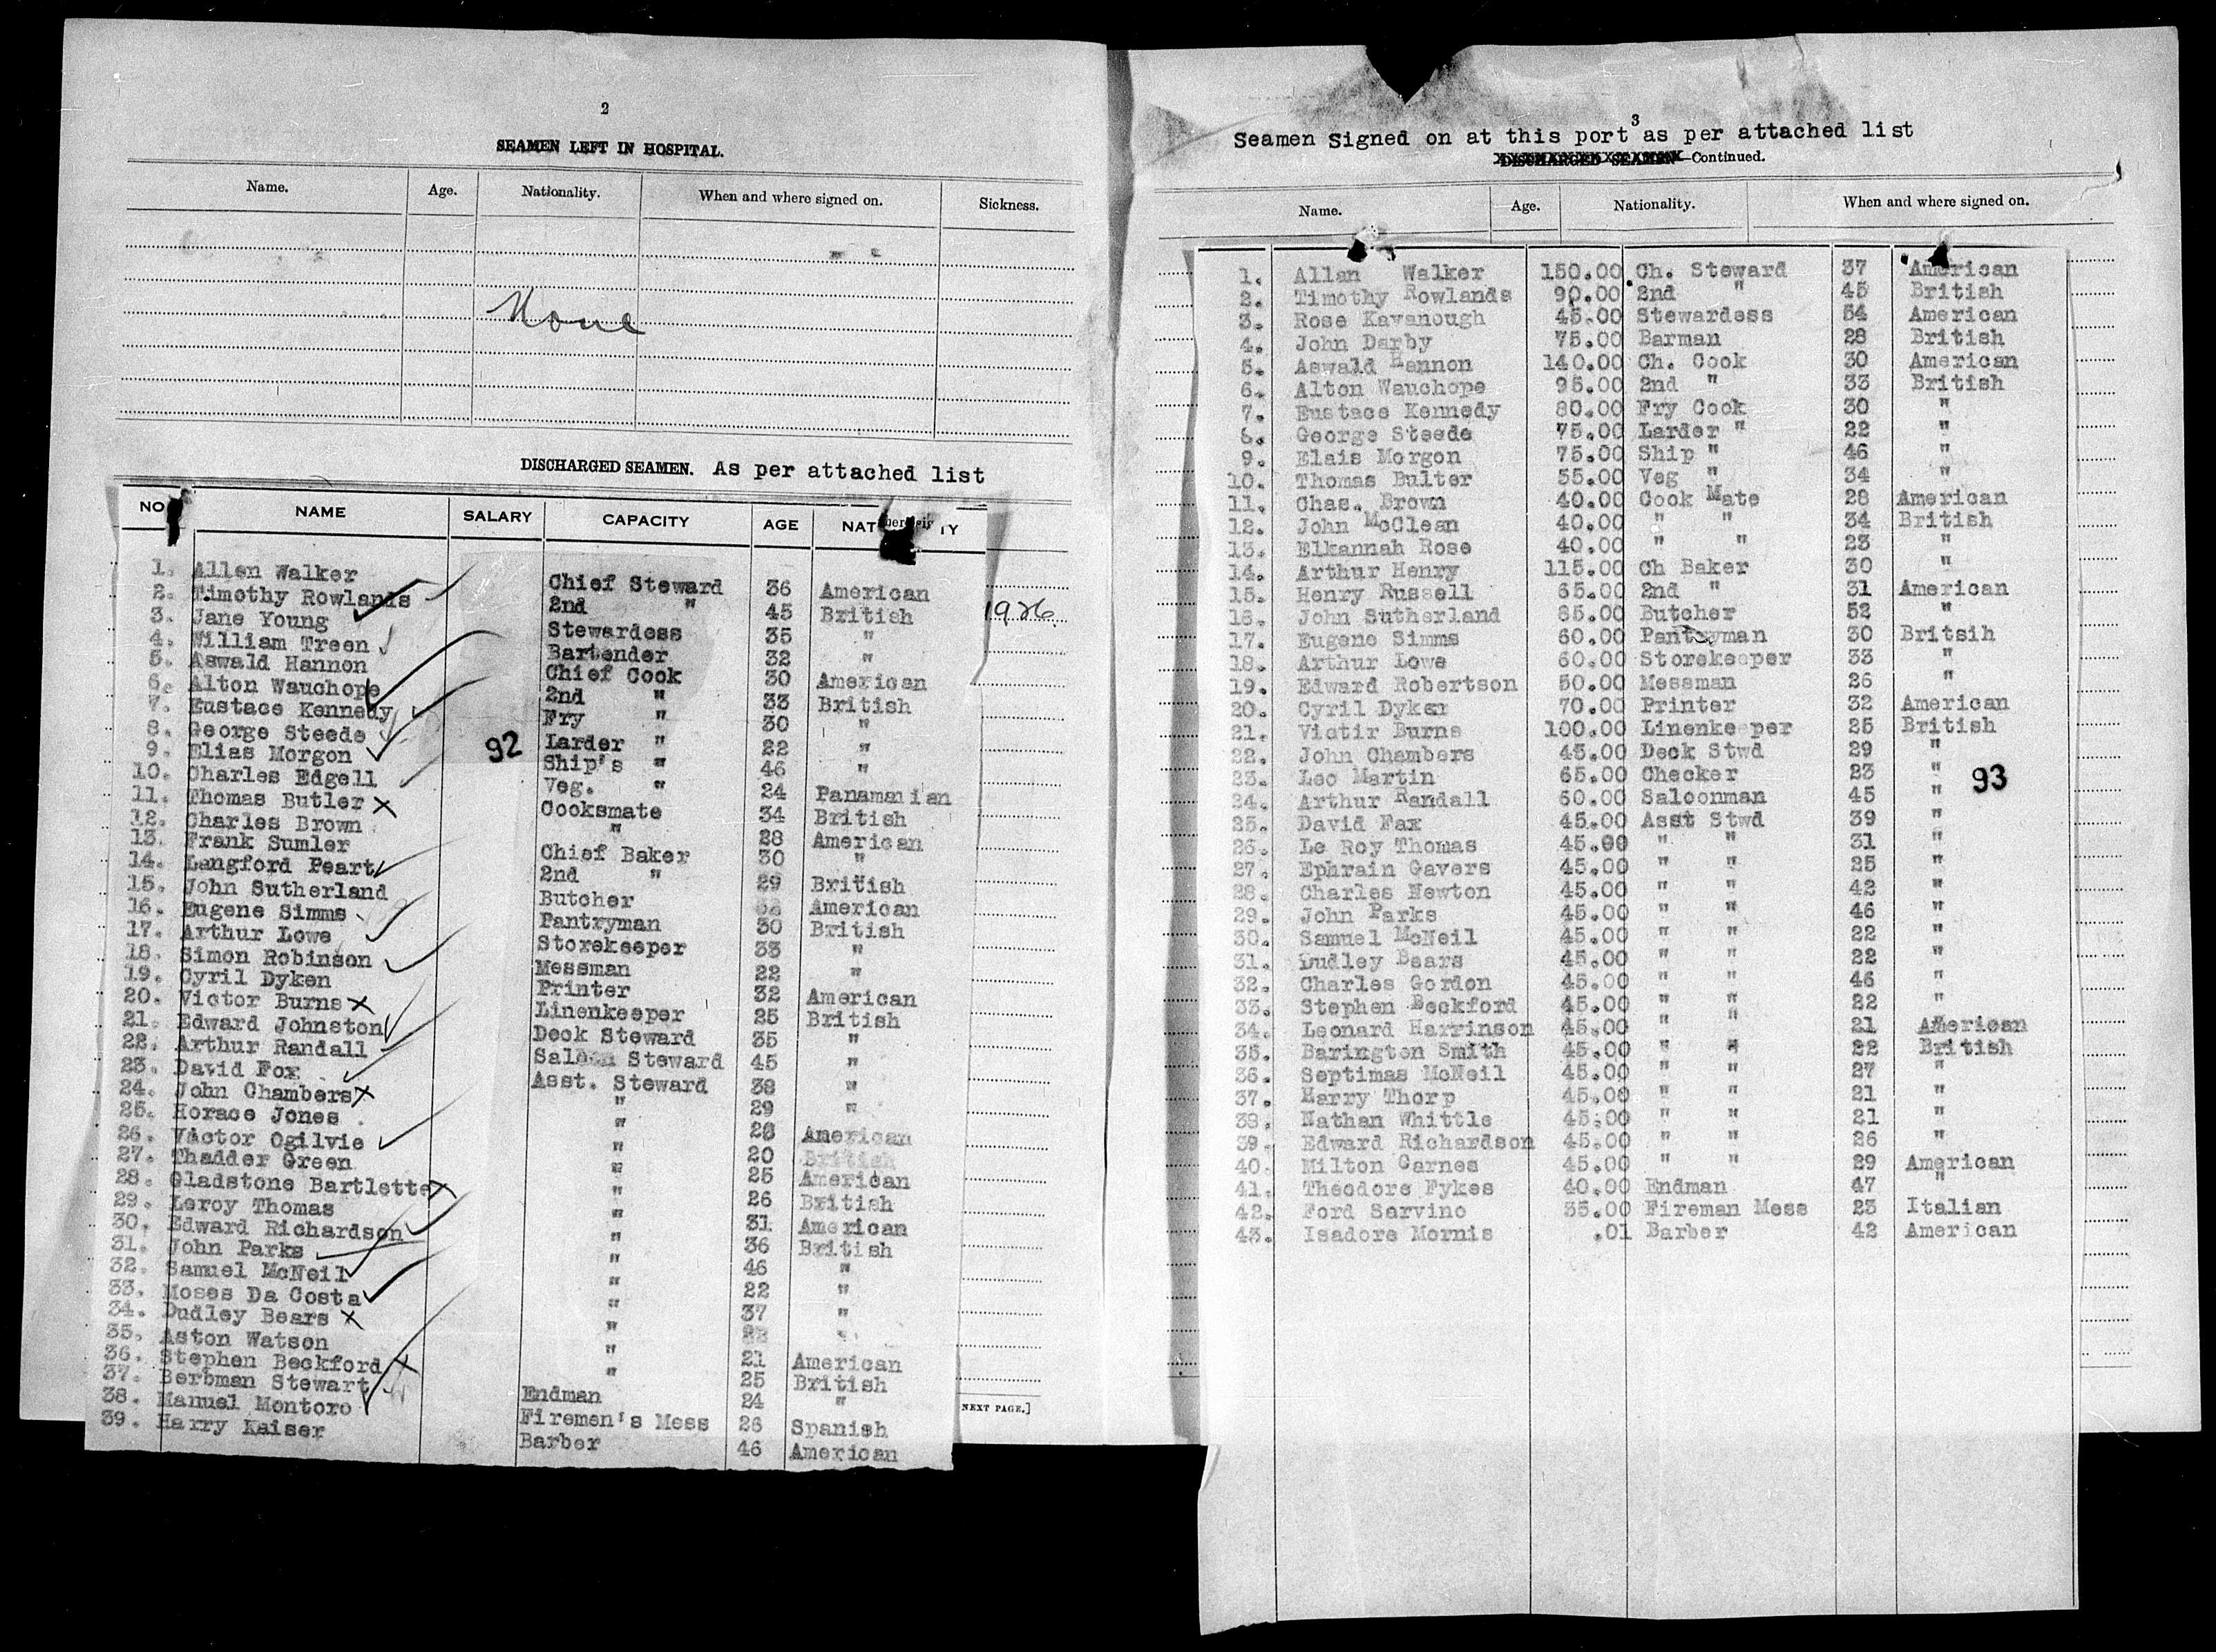 2
SEAMEN LEFT IN HOSPITAL.
Name. Age. Nationality. When and where signed on. Sickness.
None
DISCHARGED SEAMEN. As per attached list
NO NAME SALARY CAPACITY AGE NAT Y
1. Allen Walker Chief Steward 36 American
2. Timothy Rowlands 2nd " 45 British
1926
3. Jane Young Stewardess 35 "
4. William Treen Bartender 32 "
5. Aswald Hannon Chief Cook 30 American
6. Alton Wauchope 2nd " 33 British
7. Eustace Kennedy Fry " 30 "
8. George Steede Larder " 22 "
92
9. Elias Morgon Ship's " 46 "
10. Charles Edgell Veg. " 24 Panamanian
11. Thomas Butler Cooksmate 34 British
12. Charles Brown " 28 American
13. Frank Sumler Chief Baker 30 "
14. Langford Peart 2nd " 29 British
15. John Sutherland Butcher American
16. Eugene Simms Pantryman 30 British
17. Arthur Lowe Storekeeper 33 "
18. Simon Robinson Messman 22 "
19. Cyril Dyken Printer 32 American
20. Victor Burns Linenkeeper 25 British
21. Edward Johnston Deck Steward 35 "
22. Arthur Randall Saloon Steward 45 "
23. David Fox Asst. Steward 38 "
24. John Chambers " 29 "
25. Horace Jones " 28 American
26. Victor Ogilvie " 20 British
27. Thadder Green " 25 American
28. Gladstone Bartlette " 26 British
29. Leroy Thomas " 31 American
30. Edward Richardson " 36 British
31. John Parks " 46 "
32. Samuel McNeil " 22 "
33. Moses Da Costa " 37 "
34. Dudley Bears " 22 "
35. Aston Watson " 21 American
36. Stephen Beckford " 25 British
37. Berbman Stewart Endman 24 "
38. Manuel Montoro Firemen's Mess 26 Spanish
39. Harry Kaiser Barber 46 American
NEXT PAGE.]
3
Seamen Signed on at this port as per attached list
DISCHARGED SEAMEN—Continued.
Name. Age. Nationality. When and where signed on.
1. Allan Walker 150.00 Ch. Steward 37 American
2. Timothy Rowlands 90.00 2nd " 45 British
3. Rose Kavanough 45.00 Stewardess 54 American
4. John Darby 75.00 Barman 28 British
5. Aswald Hannon 140.00 Ch. Cook 30 American
6. Alton Wauchope 95.00 2nd " 33 British
7. Eustace Kennedy 80.00 Fry Cook 30 "
8. George Steede 75.00 Larder " 22 "
9. Elais Morgon 75.00 Ship " 46 "
10. Thomas Bulter 55.00 Veg " 34 "
11. Chas. Brown 40.00 Cook Mate 28 American
12. John McClean 40.00 " " 34 British
13. Elkannah Rose 40.00 " " 23 "
14. Arthur Henry 115.00 Ch Baker 30 "
15. Henry Russell 65.00 2nd " 31 American
16. John Sutherland 85.00 Butcher 52 "
17. Eugene Simms 60.00 Pantryman 30 Britsih
18. Arthur Lowe 60.00 Storekeeper 33 "
19. Edward Robertson 50.00 Messman 26 "
20. Cyril Dyker 70.00 Printer 32 American
21. Victir Burns 100.00 Linenkeeper 25 British
22. John Chambers 45.00 Deck Stwd 29 "
23. Leo Martin 65.00 Checker 23 "
93
24. Arthur Randall 60.00 Saloonman 45 "
25. David Fax 45.00 Asst Stwd 39 "
26. Le Roy Thomas 45.00 " " 31 "
27. Ephrain Gavers 45.00 " " 25 "
28. Charles Newton 45.00 " " 42 "
29. John Parks 45.00 " " 46 "
30. Samuel McNeil 45.00 " " 22 "
31. Dudley Bears 45.00 " " 22 "
32. Charles Gordon 45.00 " " 46 "
33. Stephen Beckford 45.00 " " 22 "
34. Leonard Harrinson 45.00 " " 21 American
35. Barington Smith 45.00 " " 22 British
36. Septimas McNeil 45.00 " " 27 "
37. Harry Thorp 45.00 " " 21 "
38. Nathan Whittle 45.00 " " 21 "
39. Edward Richardson 45.00 " " 26 "
40. Milton Carnes 45.00 " " 29 American
41. Theodore Fykes 40.00 Endman 47 "
42. Ford Sarvino 35.00 Fireman Mess 23 Italian
43. Isadore Mornis .01 Barber 42 American